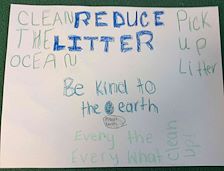 CLEAN
THE
OCEAN
REDUCE
LITTER
Pick
up
Litter
Be Kind to
the earth
Every the
Every what
Clean
up